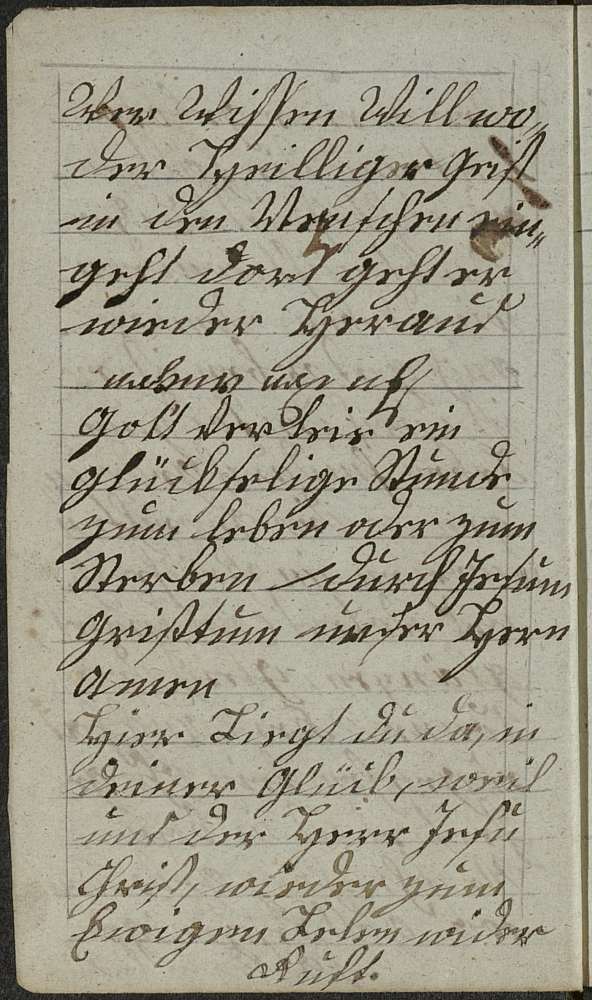 Wer Wissen Will wo
der Heilliger Geist
in den Menschen ein„
geht dort geht er
wieder Heraus
Gott Verleie ein
glückselige Stunde
zum leben oder zum
Sterben durch Jesum
Gristtum unser Hern
Amen
Hier Liegt du da, in
deiner
und der Herr Jesu
Christ, wieder zum
Ewigen Leben wider
Ruft.